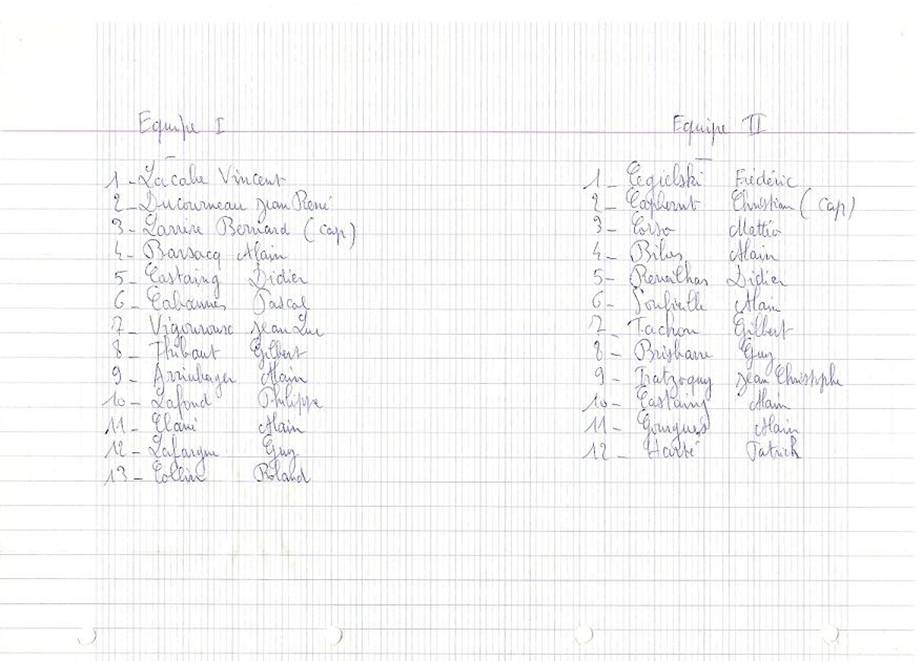 Equipe I
1 - Lacabe Vincent
2 - Ducourneau Jean René
3 - Larrère Bernard (cap)
4 - Barsacq Alain
5 - Castaing Didier
6 - Cabannes Pascal
7 - Vigouroux Jean Luc
8 - Thibaut Gilbert
9 - Alain
10 - Lafond Philippe
11 - Alain
12 - Lafargue Guy
13 - Collin Roland
Equipe II
1 - Cegielski Frédéric
2 - Christian (cap)
3 - Corso
4 - Alain
5 - Didier
6 - Alain
7 - Tachon Gilbert
8 - Guy
9 - Iratzoquy Jean Christophe
10 - Castaing Alain
11 - Gourgues Alain
12 - Patrick